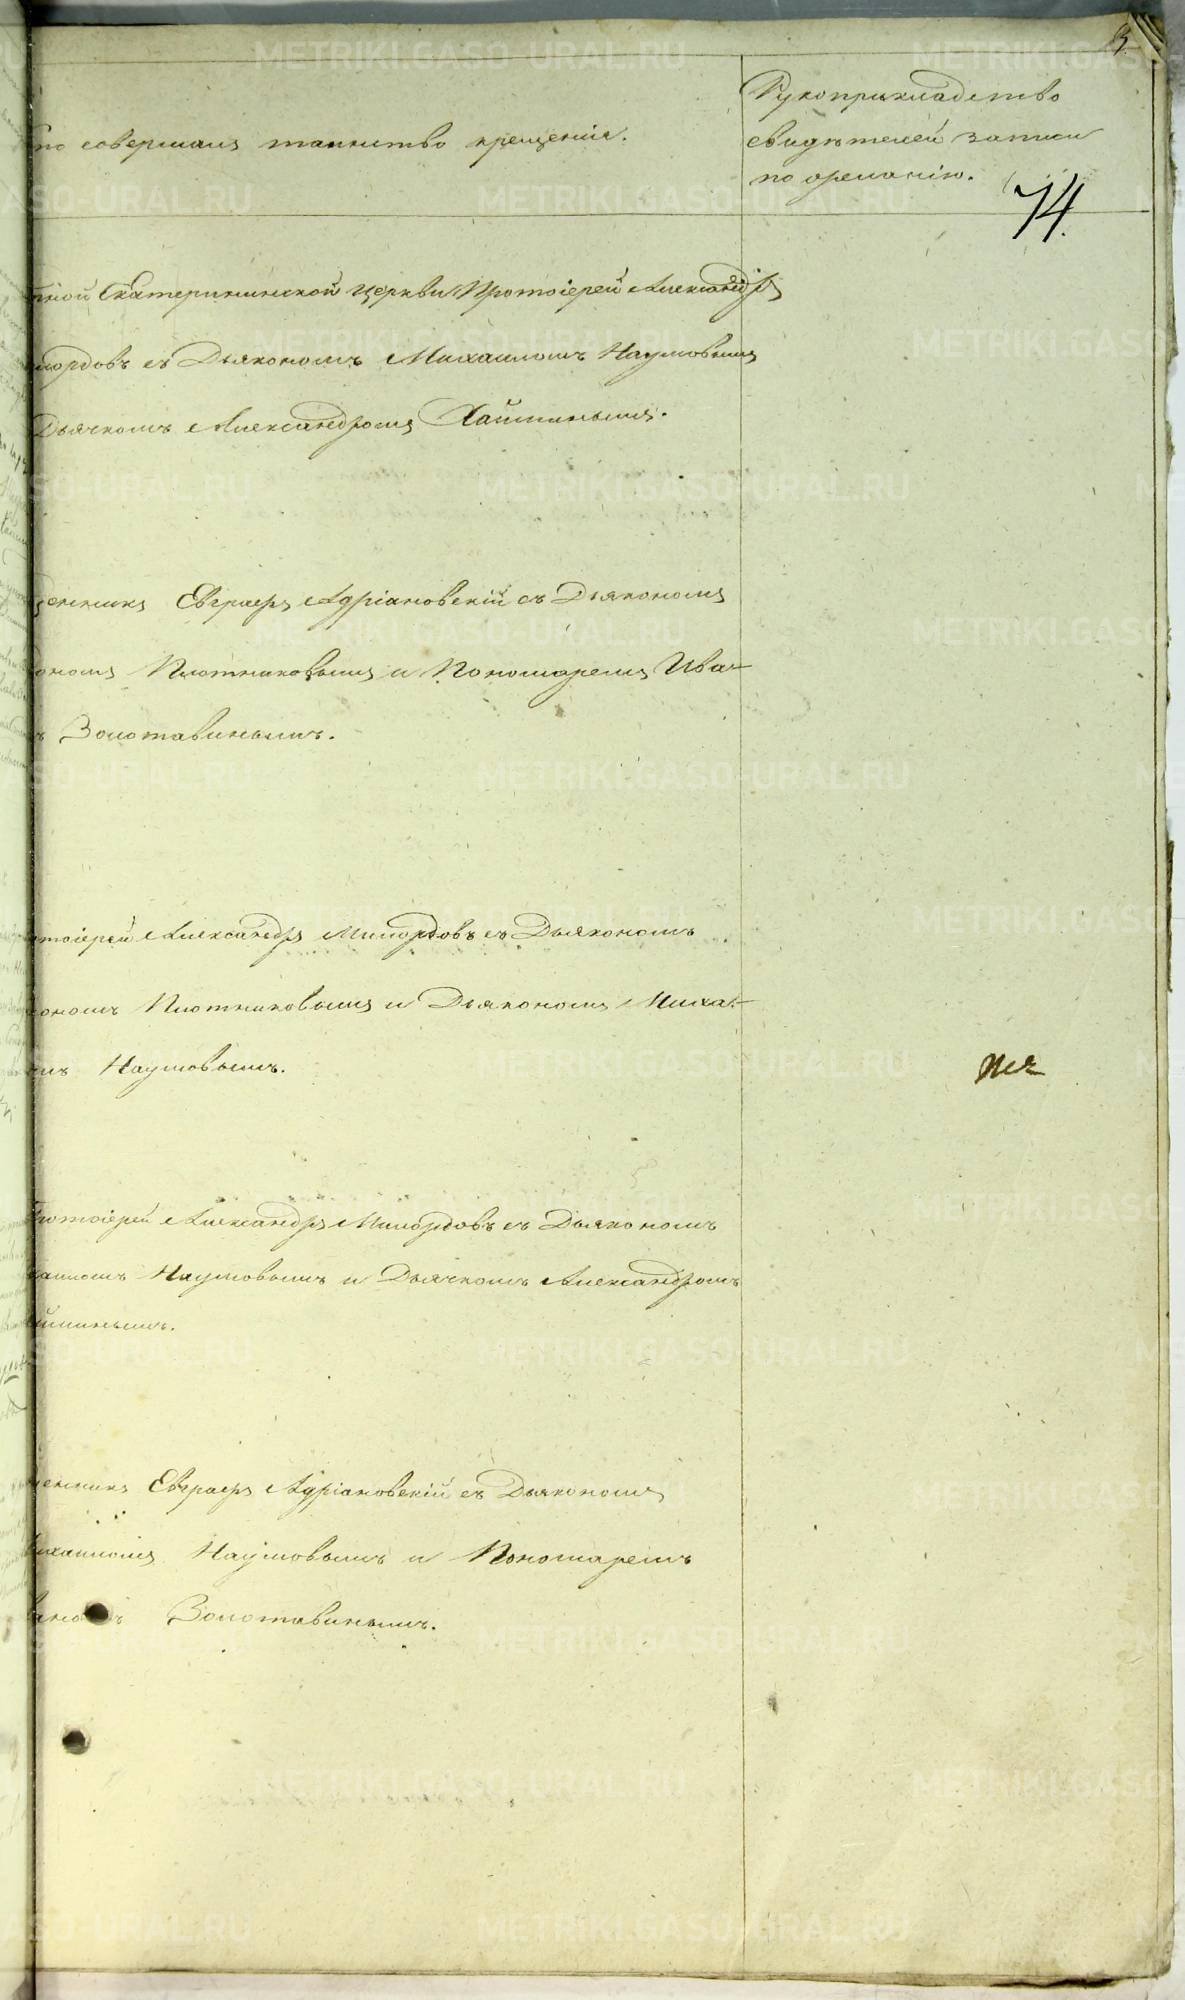 Рукоприкладство
то совершалъ таинство крещенія.
свидѣтелей записи
по желанію.
74.
рной Екатерининской церкви Протоіерей Александръ
лордовъ съ Дьякономъ Михаиломъ Наумовымъ
Дьячкомъ Александромъ Хайминымъ.
щенникъ Евграфъ Адріановскій съ Дьякономъ
ономъ Плотниковымъ и Пономаремъ Ива-
ъ Золотавинымъ.
отоіерей Александръ Милордовъ съ Дьякономъ
ономъ Плотниковымъ и Дьякономъ Миха-
мъ Наумовымъ.
ротоіерей Александръ Милордовъ съ Дьякономъ
хаиломъ Наумовымъ и Дьячкомъ Александромъ
йминымъ.
щенникъ Евграфъ Адріановскій съ Дьякономъ
ихаиломъ Наумовымъ и Пономаремъ
Золотавинымъ.
METRIKI.GASO-URAL.RU